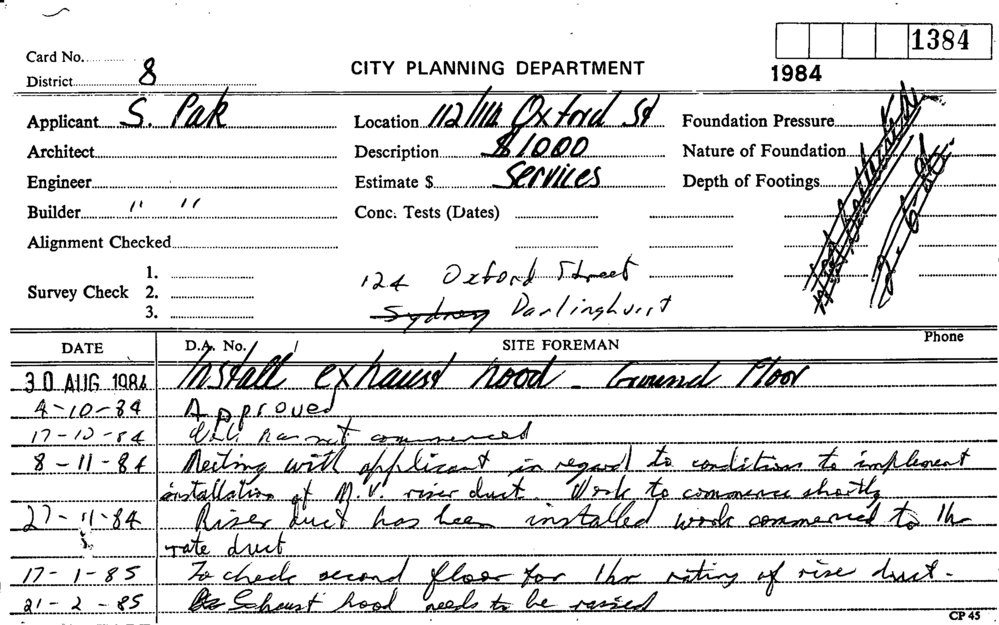 1384
Card No.
1984
CITY PLANNING DEPARTMENT
District 8
Applicant S. Pak Location 112/114 Oxford St Foundation Pressure
Architect Description $1000 Nature of Foundation
Engineer Estimate $ Services Depth of Footings
Builder " " Conc. Tests (Dates)
Alignment Checked
1.
Survey Check 2.
3.
124 Oxford Street
Sydney Darlinghurst
DATE D.A. No. SITE FOREMAN Phone
30 AUG 1984 Install exhaust hood - Ground Floor
4-10-84 Approved
17-10-84 Work has not commenced
8-11-84 Meeting with applicant in regard to conditions to implement
installation of M.V. riser duct. Work to commence shortly
27-11-84 Riser duct has been installed work commenced to 1hr
rate duct
17-1-85 To check second floor for 1hr rating of rise duct.
21-2-85 Exhaust hood needs to be raised
CP 45